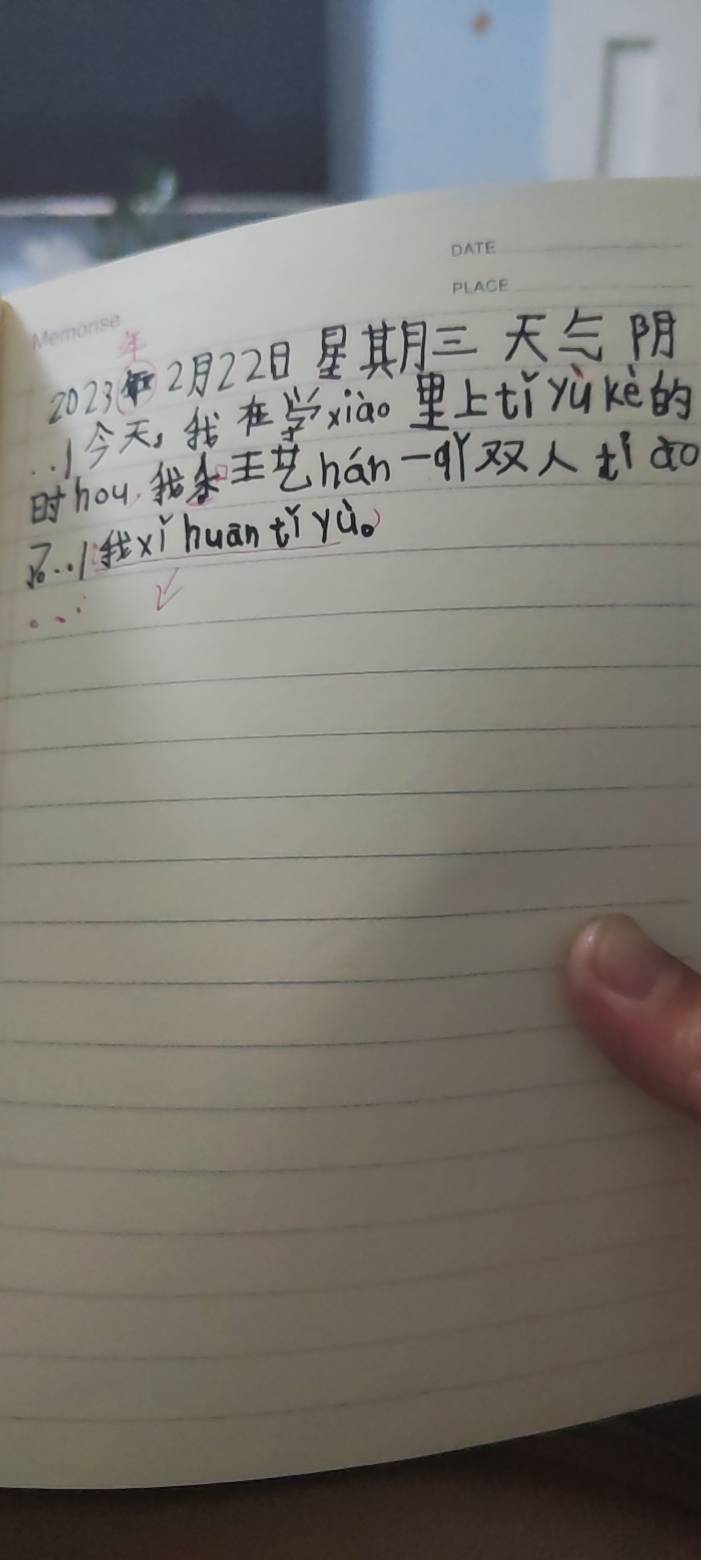 DATE
PLACE
Memorise
年
2023年2月22日 星其月三 天气阴
..1今天,我在学xiào里上tǐ yù kè的
时hou,我和王艺hán一qǐ双人tiào
了..1我xǐ huan tǐ yù。